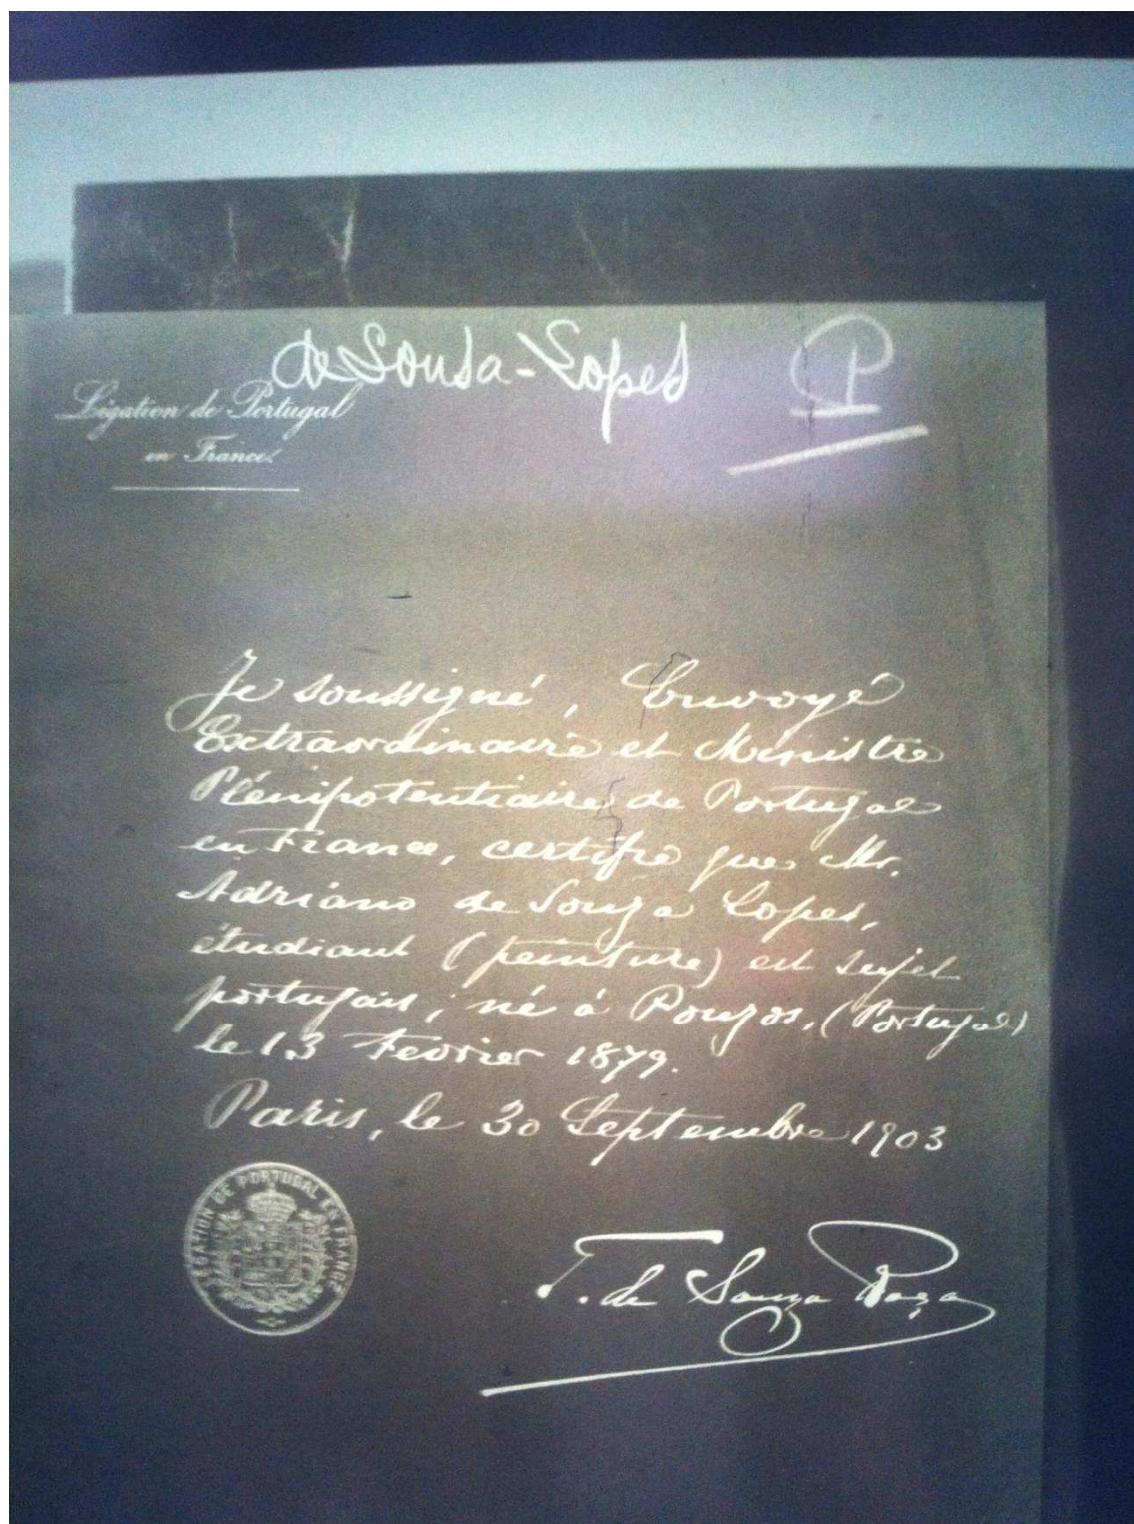 de Sousa-Lopes
P
Légation de Portugal
en France.
Je soussigné, Envoyé
Extraordinaire et Ministre
Plénipotentiaire de Portugal
en France, certifie que Mr.
Adriano de Souza Lopes,
étudiant (peinture) est sujet
portugais, né à Pouzos, (Portugal)
le 13 Février 1879.
Paris, le 30 Septembre 1903
LEGATION DE PORTUGAL EN FRANCE
T. de Souza Roza